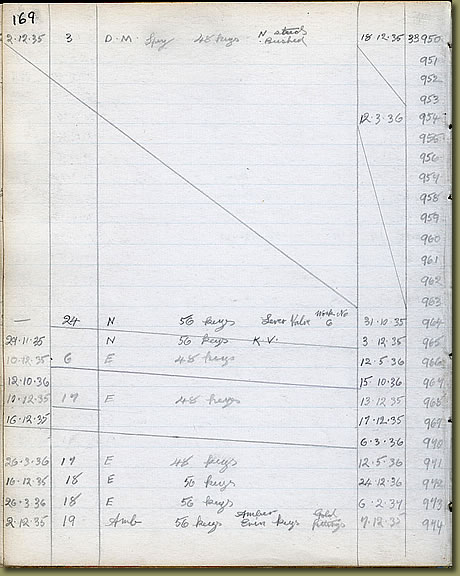 169
2.12.35 3 D.M. Spey 48 keys N studs Bushed 18.12.35 33950
951
952
953
12.3.36 954
955
956
957
958
959
960
961
962
963
— 24 N 56 keys Lever Valve No 6 31.10.35 964
29.11.35 N 56 keys K.V. 3 12.35 965
10.12.35 6 E 48 keys 12.5.36 966
12.10.36 15 10.36 967
10.12.35 17 E 48 keys 13.12.35 968
16.12.35 17.12.35 969
6.3.36 970
26.3.36 17 E 48 keys 12.5.36 971
16.12.35 18 E 56 keys 24.12.36 972
26.3.36 18 E 56 keys 6.2.37 973
2.12.35 19 Amb 56 keys Amber Even keys Gold fittings 7.12.35 974